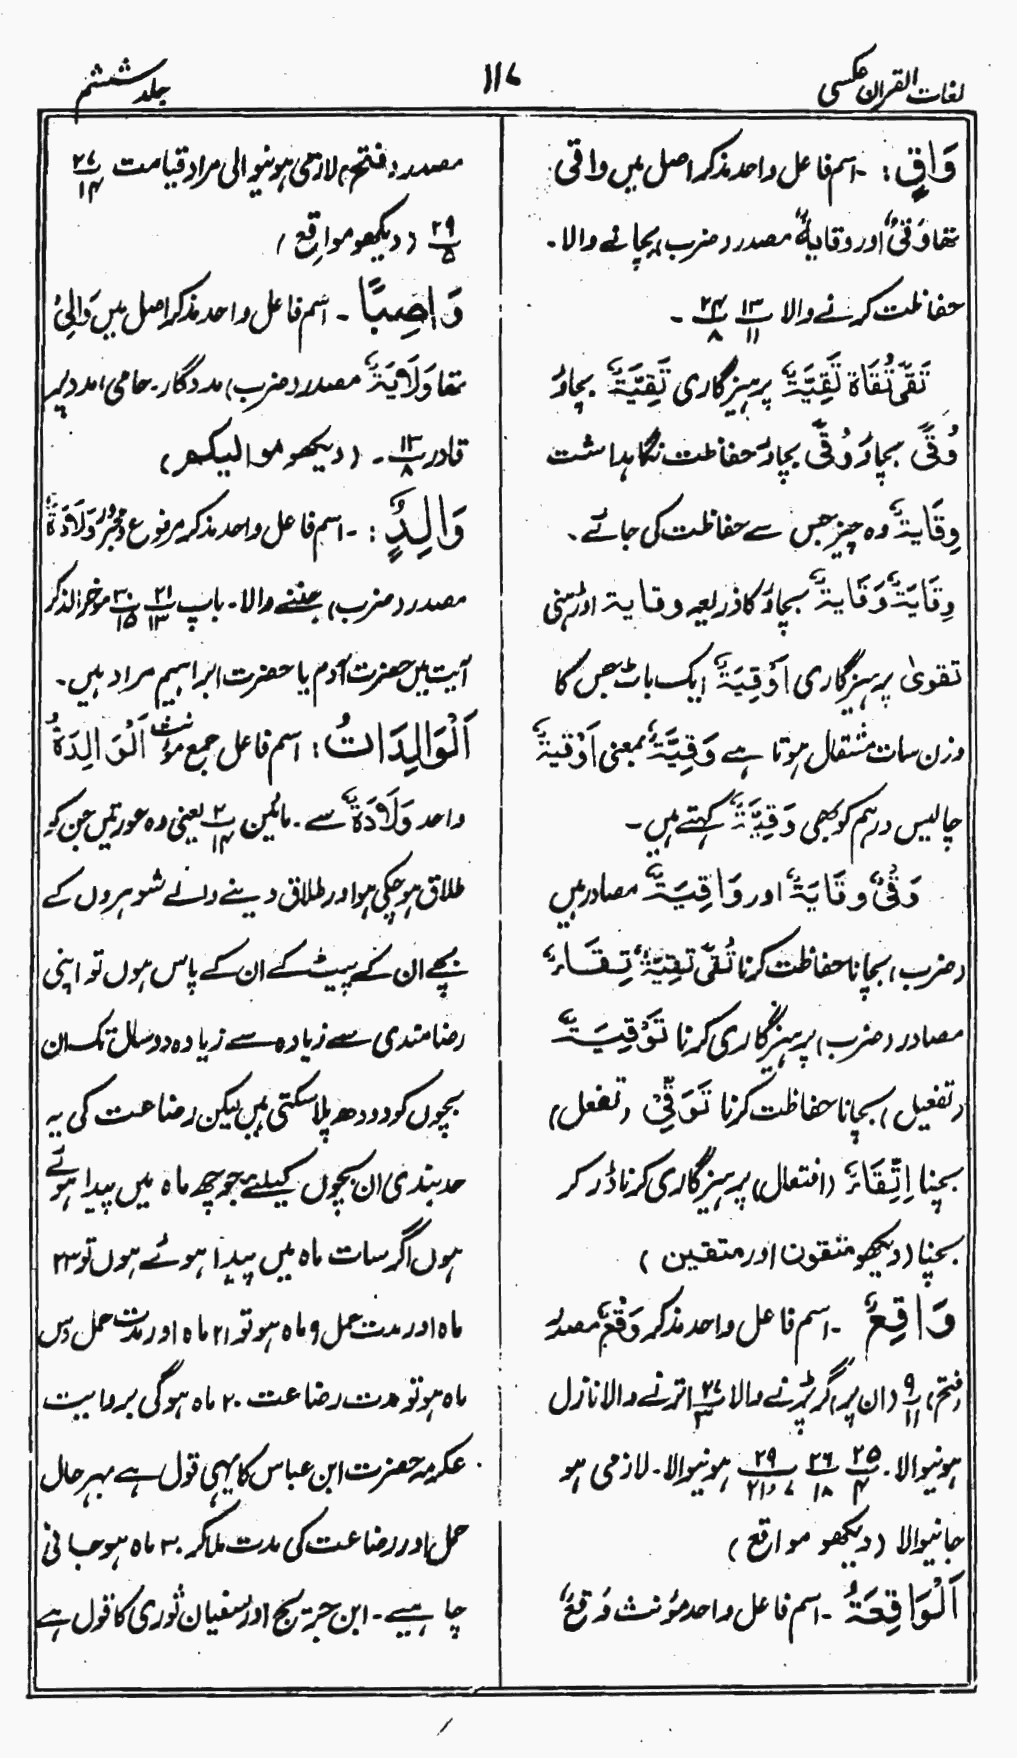 لغات القرآن عکسی ۱۱۷ جلد ششم
وَاقٍ: ۔ اسم فاعل واحد مذکر اصل میں واقی
تھا وَقْیٌ اور وقایۃٌ مصدر (ضرب) بچانے والا۔
حفاظت کرنے والا ۱۳/۱۱ ۲۴/۸ ۔
تَقِیٌّ تُقَاۃ تَقِیَّۃٌ پرہیزگاری تَقِیَّۃٌ بچاؤ
وُقًی بچاؤ وُقًی بچاؤ حفاظت نگاہداشت
وِقَایۃٌ وہ چیز جس سے حفاظت کی جائے۔
وِقَایَۃٌ وَقَایۃٌ بچاؤ کا ذریعہ وقایۃ اوڑھنی
تقویٰ پرہیزگاری اَوْقِیَۃٌ ایک باٹ جس کا
وزن سات مثقال ہوتا ہے وَقِیَّۃٌ بمعنی اَوْقیۃٌ
چالیس درہم کو بھی وَقِیَّۃٌ کہتے ہیں۔
وَقْیٌ وِقَایَۃٌ اور وَاقِیَۃٌ مصادر ہیں
(ضرب) بچانا حفاظت کرنا تُقًی تقِیَّۃٌ تِقَاءٌ
مصادر (ضرب) پرہیزگاری کرنا تَوْقِیَۃٌ
(تفعیل) بچانا حفاظت کرنا تَوَقِّیْ (تفعل)
بچنا اِتِّقَاءٌ (افتعال) پرہیزگاری کرنا ڈر کر
بچنا (دیکھو متقون اور متقین)
وَاقِعٌ ۔ اسم فاعل واحد مذکر وَقْعٌ مصدر
(فتح) ۹/۱۱ (ان پر) گر پڑنے والا ۲۷/۳ اترنے والا نازل
ہونیوالا۔ ۲۵/۴ ۲۶/۱۸ ۲۹/۷،۲۱ ہونیوالا۔ لازمی ہو
جانیوالا (دیکھو مواقع)
اَلْوَاقِعَۃُ ۔ اسم فاعل واحد مؤنث وَقْعٌ
مصدر (فتح) لازمی ہونیوالی مراد قیامت ۲۷/۱۴
۲۹/۵ (دیکھو مواقع)
وَاصِبًا ۔ اسم فاعل واحد مذکر اصل میں وَالِیٌ
تھا وَلَایَۃٌ مصدر (ضرب) مددگار۔ حامی، مدد پر
قادر ۱۳/۸ ۔ (دیکھو موالیکم)
وَالِدٌ: ۔ اسم فاعل واحد مذکر مرفوع و مجرور وَلَادَۃٌ
مصدر (ضرب) جننے والا۔ باپ ۲۱/۱۳ ۳۰/۱۵ موخر الذکر
آیت میں حضرت آدم یا حضرت ابراہیم مراد ہیں۔
اَلْوَالِدَاتُ: اسم فاعل جمع مؤنث اَلْوَالِدَۃُ
واحد وَلَادَۃٌ سے۔ مائیں ۲/۱۴ یعنی وہ عورتیں جن کو
طلاق ہو چکی ہو اور طلاق دینے والے شوہروں کے
بچے ان کے پیٹ کے ان کے پاس ہوں تو اپنی
رضامندی سے زیادہ سے زیادہ دو سال تک ان
بچوں کو دودھ پلا سکتی ہیں لیکن رضاعت کی یہ
حد بندی ان بچوں کیلئے ہے جو چھ ماہ میں پیدا ہوئے
ہوں اگر سات ماہ میں پیدا ہوئے ہوں تو ۲۳
ماہ اور مدت حمل ۹ ماہ ہو تو ۲۱ ماہ اور مدت حمل دس
ماہ ہو تو مدت رضاعت ۲۰ ماہ ہوگی بروایت
عکرمہ حضرت ابن عباس کا یہی قول ہے بہرحال
حمل اور رضاعت کی مدت ملا کر ۳۰ ماہ ہو جانی
چاہیے۔ ابن جریج اور سفیان ثوری کا قول ہے